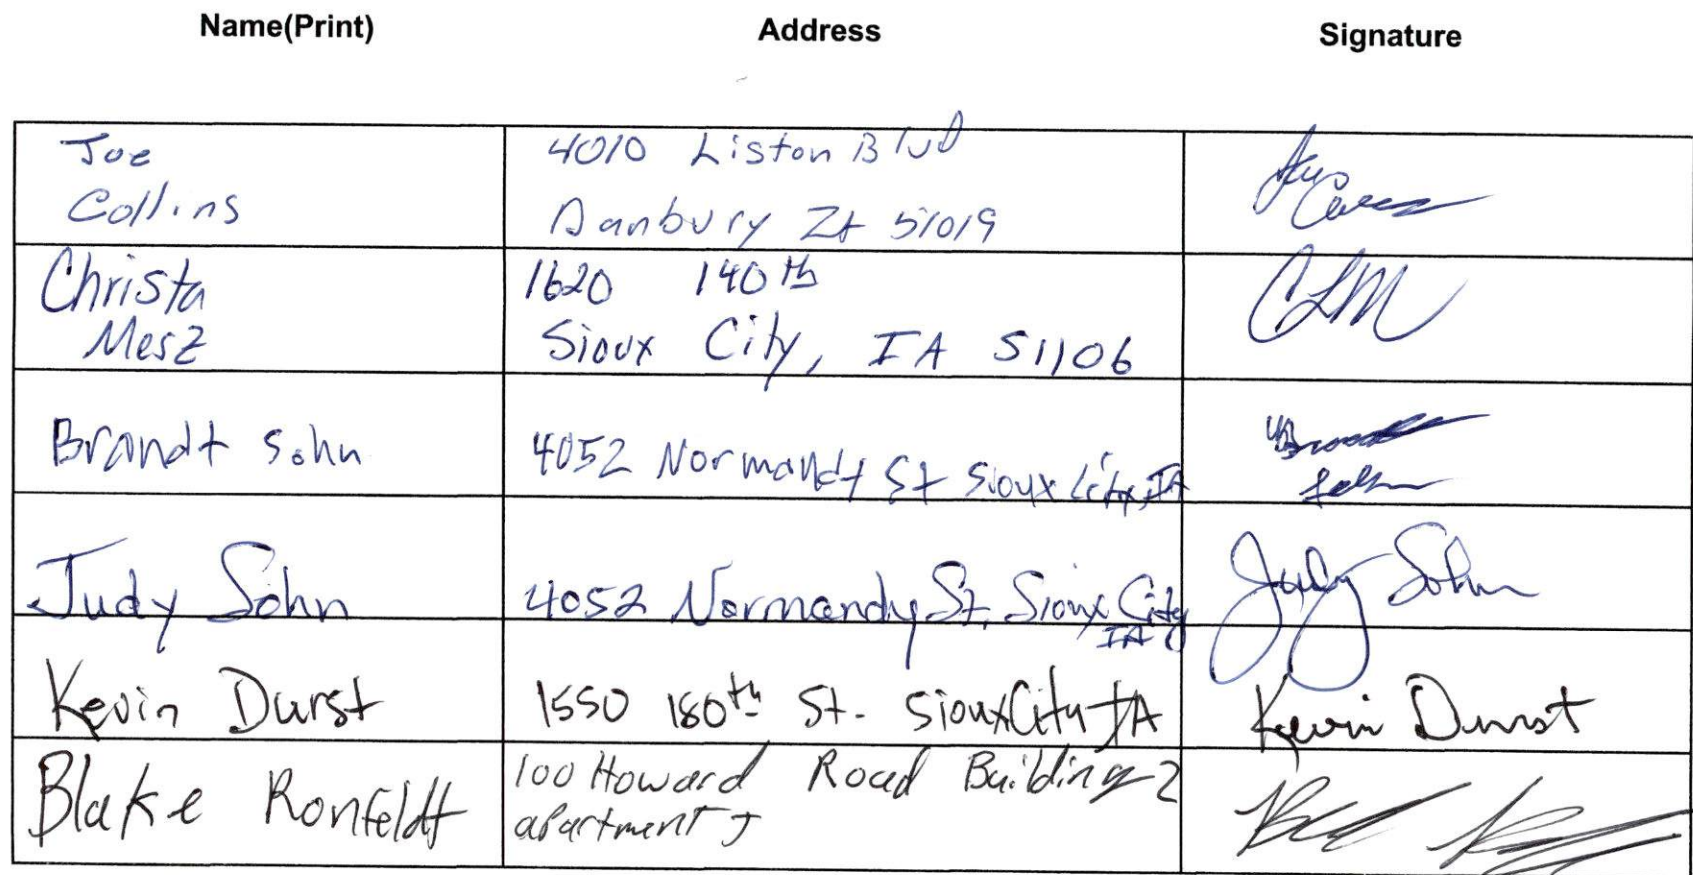 Name(Print) Address Signature
Joe 4010 Liston Blvd
Collins Danbury IA 51019
Christa 1620 140th CLM
Mesz Sioux City, IA 51106
Brandt Sohn 4052 Normandy St Sioux City IA
Judy Sohn 4052 Normandy St. Sioux City Judy Sohn
IA
Kevin Durst 1550 180th St. Sioux City IA Kevin Durst
Blake Ronfeldt 100 Howard Road Building 2
apartment J